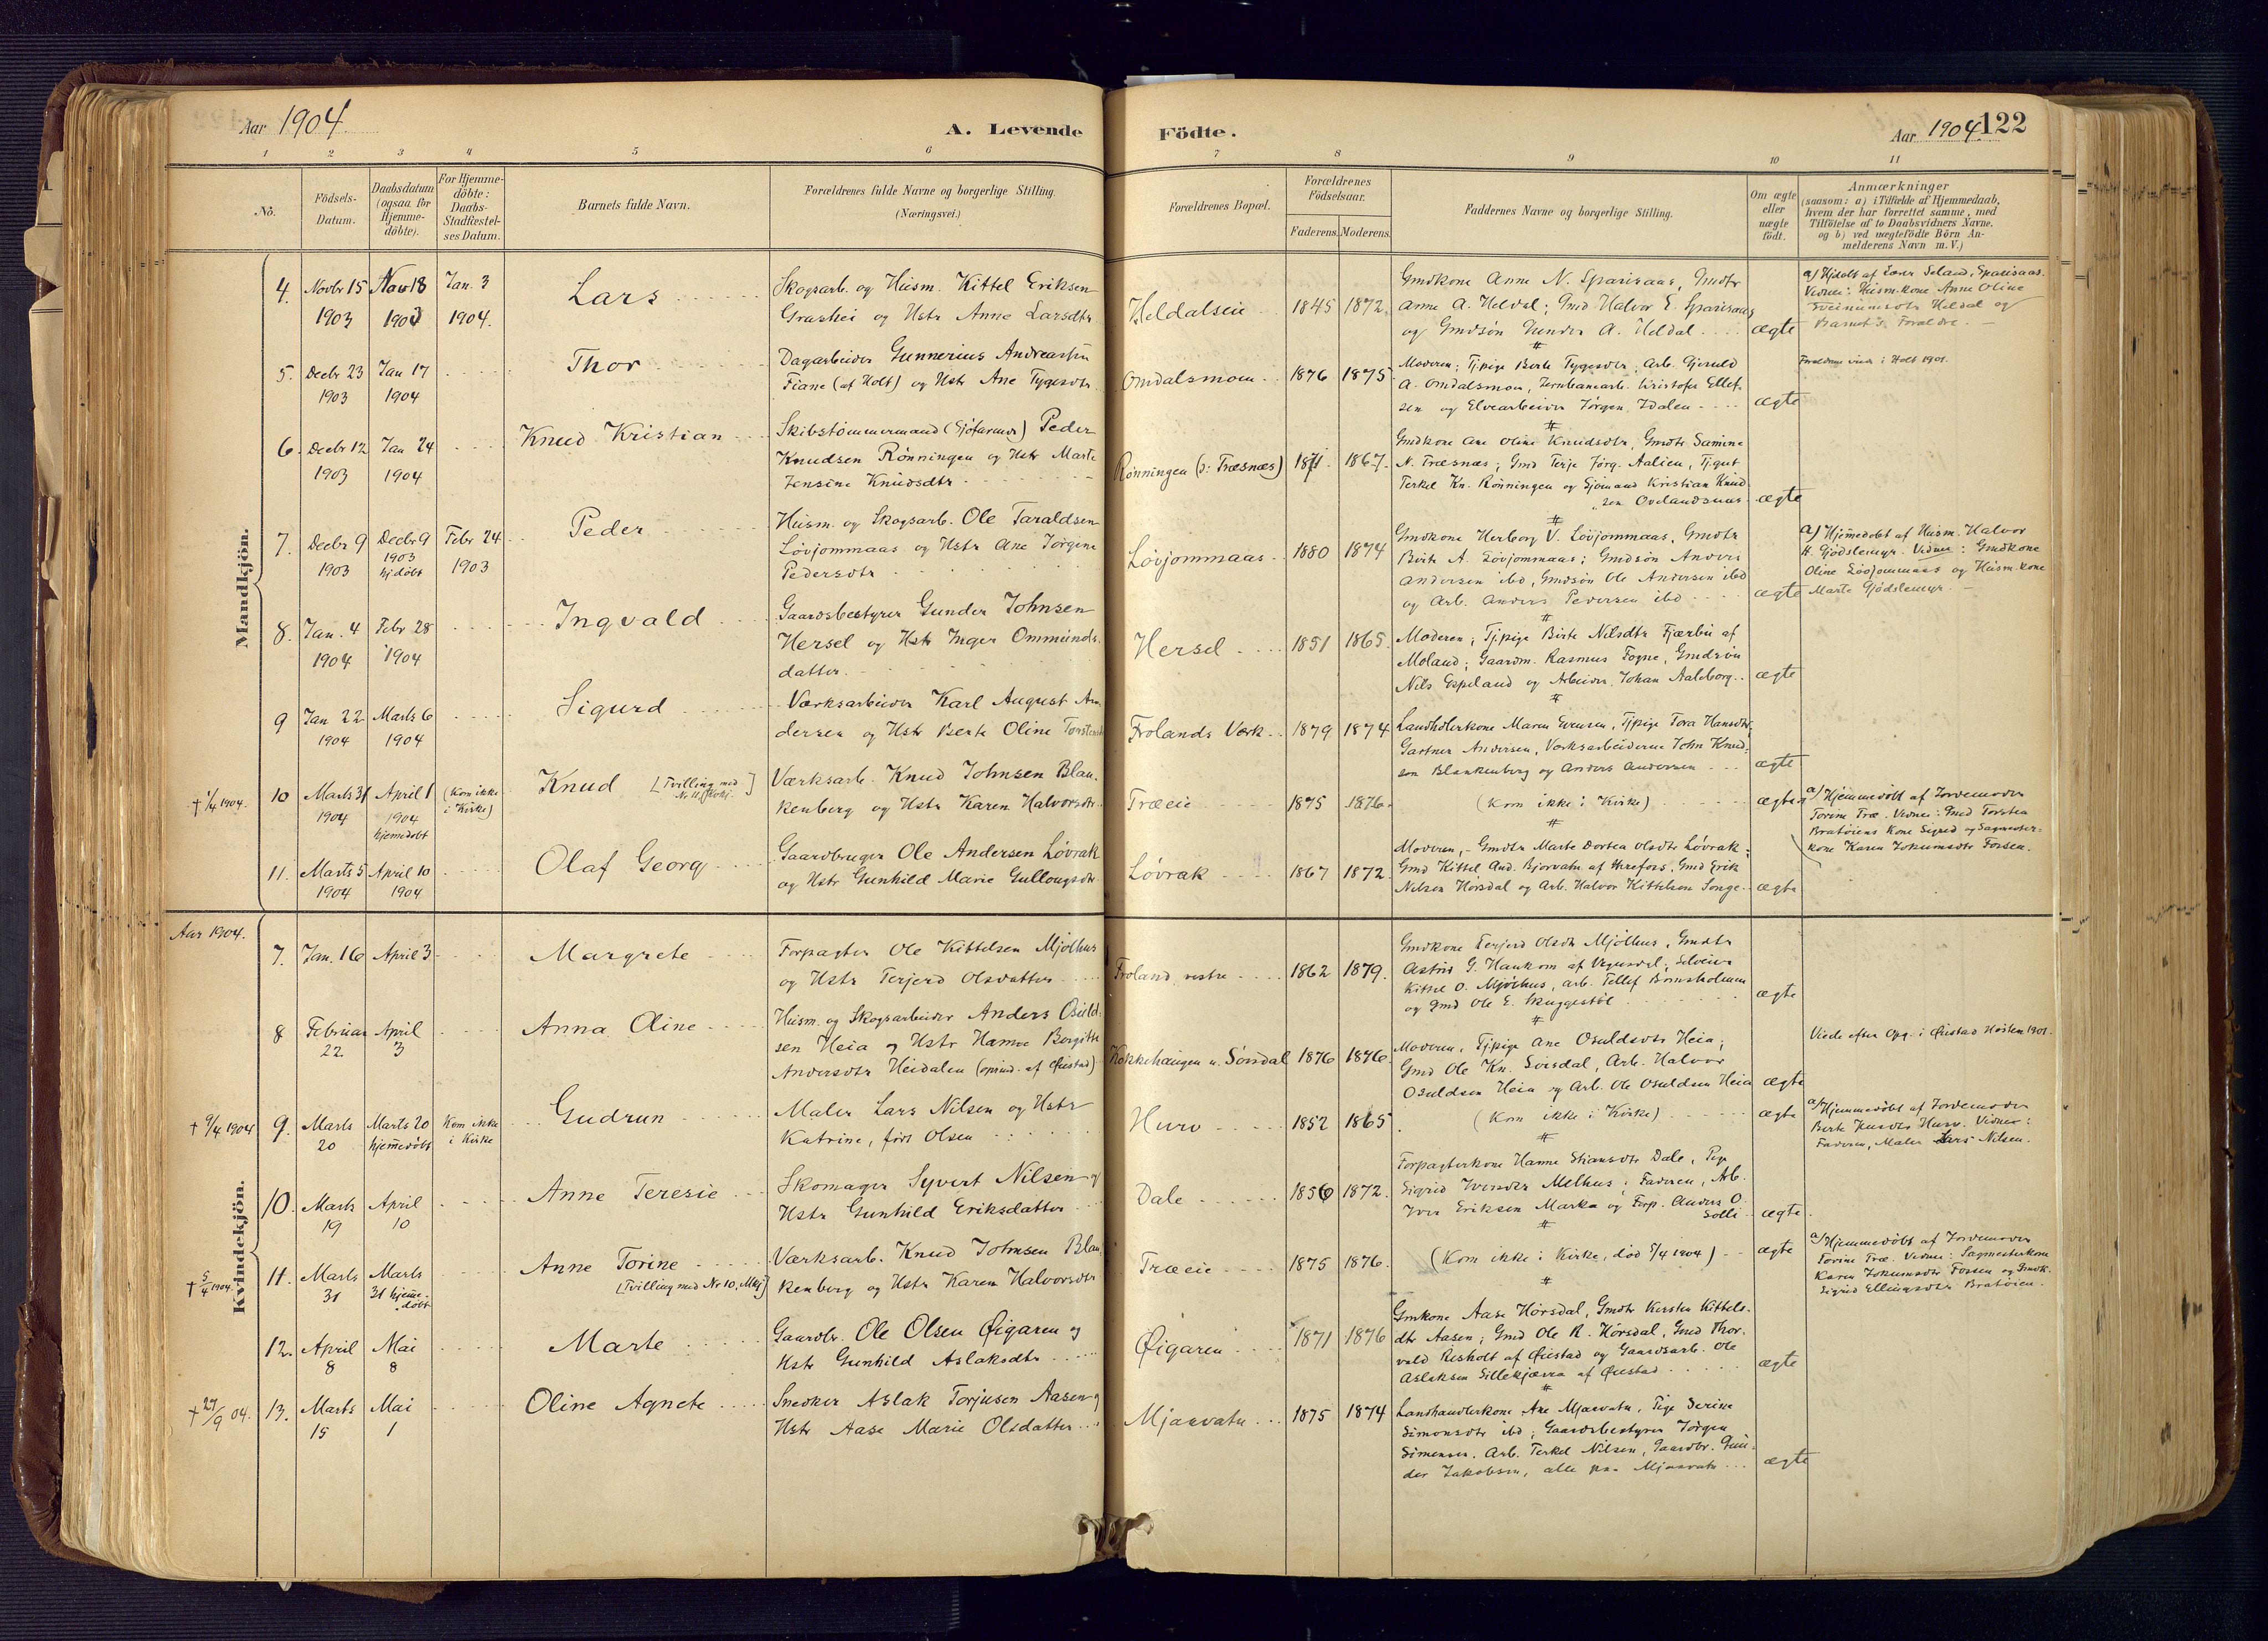 Aar 1904.
A. Levende Födte.
Aar 1904. 122
1 2 3 4 5 6 7 8 9 10 11
No.
Födsels-Datum.
Daabsdatum (ogsaa for Hjemme-döbte).
For Hjemme-döbte: Daabs-Stadfæstel-ses Datum.
Barnets fulde Navn.
Forældrenes fulde Navne og borgerlige Stilling.
(Næringsvei.)
Forældrenes Bopæl.
Forældrenes Födselsaar.
Faderens. Moderens.
Faddernes Navne og borgerlige Stilling.
Om ægte eller uægte födt.
Anmærkninger
(saasom: a) i Tilfælde af Hjemmedaab,
hvem der har forrettet samme, med
Tilföielse af to Daabsvidners Navne,
og b) ved uægtefödte Börn An-
melderens Navn m. V.)
Mandkjön.
4. Novbr 15 1903 Nov 18 1903 Jan. 3 1904. Lars
Skogsarb. og Husm. Kittel Eriksen
Grashei og Hstr Anne Larsdtr
Heldalseie 1845 1872.
Gmdkone Anne N. Sparsaas, Gmdtr
Anne A. Heldal; Gmd Halvor E. Sparsaas
og Gmdsøn Gunder A. Heldal ægte
a) Hjdøbt af Lærer Seland, Sparsaas.
Vidner: Husm.kone Anne Oline
Heldal og
Barnets Forældre.
5. Decbr 23 1903 Jan 17 1904 Thor
Dagarbeider Gunnerius Andreassen
Fiane (af Holt) og Hstr Ane Tygesdtr
Omdalsmoen 1876 1875
Moderen; Tjpige Berte Tygesdtr, Arb. Gjeruld
A. Omdalsmoen, Jernbanearb. Kristofer Ellef-
sen og Elvearbeider Jørgen Idalen ægte
Forældrene viede i Holt 1901.
6. Decbr 12 1903 Jan 24 1904 Knud Kristian
Skibstømmermand (Sjøfarende) Peder
Knudsen Rønningen og Hstr Marte
Jensine Knudsdtr
Rønningen (p: Træsnæs) 1871. 1867.
Gmdkone Ane Oline Knudsdtr, Gmdtr Samine
N. Træsnæs; Gmd Terje Jørg. Aalien, Tj.gut
Terkel Kn. Rønningen og Sjømand Kristian Knud
sen Ovelandsnæs ægte
7. Decbr 9 1903 Decbr 9 1903 hjdøbt Febr 24 1903 Peder
Husm. og Skogsarb. Ole Taraldsen
Løvjommaas og Hstr Ane Jørgine
Pedersdtr
Løvjommaas 1880 1874
Gmdkone Herborg V. Løvjommaas, Gmdtr
Birte A. Løvjommaas; Gmdsøn Anders
Andersen ibd, Gmdsøn Ole Andersen ibd
og Arb. Anders Pedersen ibd ægte
a) Hjemedøbt af Husm. Halvor
H. Gjødslemyr. Vidner: Gmdkone
Oline Løvjommaas og Husm.kone
Marte Gjødslemyr.
8. Jan. 4 1904 Febr 28 1904 Ingvald
Gaardsbestyrer Gunder Johnsen
Hersel og Hstr Inger Ommunds-
datter.
Hersel 1851 1865.
Moderen; Tjpige Birte Nilsdtr Fjærbu af
Moland; Gaardm. Rasmus Fogne, Gmdsøn
Nils Espeland og Arbeider Johan Aalsborg. ægte
9 Jan 22 1904 Marts 6 1904 Sigurd
Værksarbeider Karl August An-
dersen og Hstr Berte Oline
Frolands Værk 1879 1874
Landhdlerkone Maren Evensen, Tjpige Tora Hansdtr,
Gartner Andersen, Værksarbeiderne John Knud-
sen Blankenberg og Anders Andersen ægte
† 1/4 1904. 10 Marts 31 1904 April 1 1904 hjemedøbt (Kom ikke i Kirke) Knud [Tvilling med Nr. 11, Kvkj.]
Værksarb. Knud Johnsen Blan-
kenberg og Hstr Karen Halvorsdtr
Træeie 1875 1876.
(Kom ikke i Kirke) ægte
a) Hjemmedøbt af Jordemoder
Torine Træ. Vidner: Gmd Torsten
Bratøiens Kone Sigrid og Sagmester-
kone Karen Jokumsdtr Fossen.
11. Marts 5 1904 April 10 1904 Olaf Georg
Gaardbruger Ole Andersen Løvrak
og Hstr Gunhild Marie Gullougsdtr
Løvrak 1867 1872.
Moderen, Gmdtr Marte Dortea Olsdtr Løvrak;
Gmd Kittel And. Bjorvatn af Herefoss, Gmd Erik
Nilsen Hørsdal og Arb. Halvor Kittelsen Songe ægte
Aar 1904.
Kvindekjön.
7. Jan. 16 April 3 Margrete
Forpagter Ole Kittelsen Mjølhus
og Hstr Terjerd Olsdatter
Froland vestre 1862 1879.
Gmdkone Terjerd Olsdtr Mjølhus, Gmdtr
Astrid G. Haukom af Vegusdal; Selveier
Kittel O. Mjølhus, Arb. Tellef Bornsholmen
og Gmd Ole E. Skuggestøl ægte
8 Februar 22 April 3 Anna Oline
Husm. og Skogsarbeider Anders Osuld-
sen Heia og Hstr Hanne Bergitte
Andersdtr Heidalen (oprind. af Øiestad)
Kokkehaugen u. Sørsdal 1876 1876
Moderen, Tjpige Ane Osuldsdtr Heia;
Gmd Ole Kn. Sørsdal, Arb. Halvor
Osuldsen Heia og Arb. Ole Osuldsen Heia ægte
Viede efter Opg. i Øiestad Høsten 1901.
† 9/4 1904 9. Marts 20 Marts 20 hjemedøbt Kom ikke i Kirke Gudrun
Maler Lars Nilsen og Hstr
Katrine, født Olsen
Hurv 1852 1865
(Kom ikke i Kirke) ægte
a) Hjemmedøbt af Jordemoder
Berte Hurv. Vidner:
Faderen, Maler Lars Nilsen.
10. Marts 19 April 10 Anne Teresie
Skomager Syvert Nilsen og
Hstr Gunhild Eriksdatter
Dale 1856 1872.
Forpagterkone Hanne Stiansdtr Dale, Pige
Sigrid Iversdtr Melhus; Faderen, Arb.
Iver Eriksen Marka og Forp. Anders O.
Solli ægte.
† 5/4 1904. 11. Marts 31 Marts 31 hjeme-døbt Anne Torine
[Tvilling med Nr 10, Mkj]
Værksarb. Knud Johnsen Blan-
kenberg og Hstr Karen Halvorsdtr
Træeie 1875 1876.
(Kom ikke i Kirke, død 5/4 1904) ægte
a) Hjemmedøbt af Jordemoder
Torine Træ. Vidner: Sagmesterkone
Karen Jokumsdtr Fossen og Gmdk.
Sigrid Ellingsdtr Bratøien.
12. April 8 Mai 8 Marte
Gaardbr. Ole Olsen Øigaren og
Hstr Gunhild Aslaksdtr
Øigaren 1871 1876
Gmkone Aase Hørsdal, Gmdtr Kirsten Kittels-
dtr Aasen; Gmd Ole R. Hørsdal, Gmd Thor-
vald Risholt af Øiestad og Gaardsarb. Ole
Aslaksen Sillekjærra af Øiestad ægte
† 27/9 04. 13. Marts 15 Mai 1 Oline Agnete
Snedker Aslak Torjusen Aasen og
Hstr Aase Marie Olsdatter
Mjaavatn 1875 1874
Landhandlerkone Ane Mjaavatn, Pige Serine
Simonsdtr ibd; Gaardsbestyrer Jørgen
Simonsen, Arb. Terkel Nilsen, Gaardbr. Gun-
der Jakobsen, alle paa Mjaavatn ægte